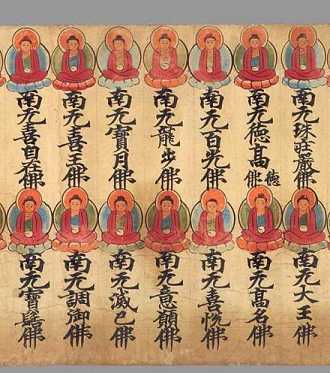 南无珠莊嚴佛
南无德高德佛
南无百光佛
南无龍步佛
南无寶月佛
南无喜王佛
南无喜自在佛
南无大王佛
南无高名佛
南无喜悅佛
南无意願佛
南无滅已佛
南无調御佛
南无寶髻佛